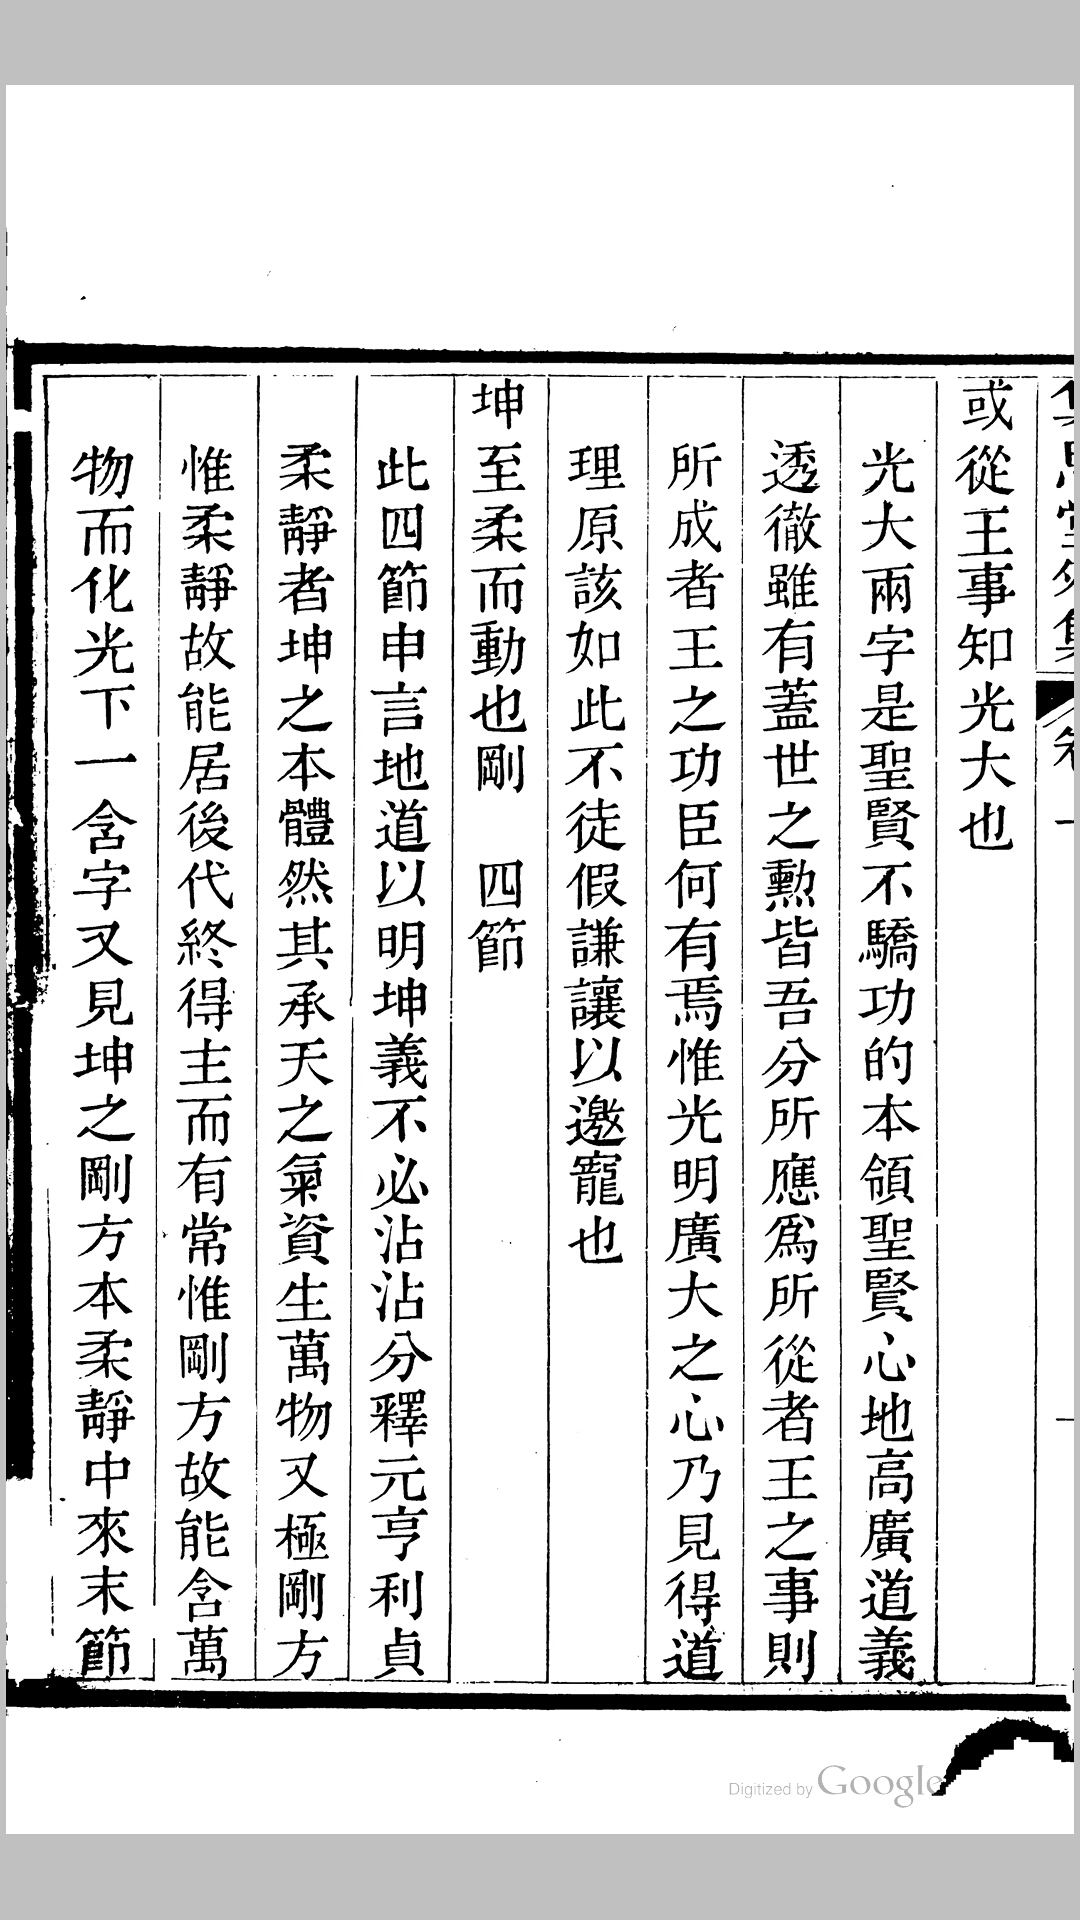 或從王事知光大也
光大兩字是聖賢不驕功的本領聖賢心地高廣道義
透徹雖有蓋世之勲皆吾分所應爲所從者王之事則
所成者王之功臣何有焉惟光明廣大之心乃見得道
理原該如此不徒假謙讓以邀寵也
坤至柔而動也剛　四節
此四節申言地道以明坤義不必沾沾分釋元亨利貞
柔靜者坤之本體然其承天之氣資生萬物又極剛方
惟柔靜故能居後代終得主而有常惟剛方故能含萬
物而化光下一含字又見坤之剛方本柔靜中來末節
Digitized by Google